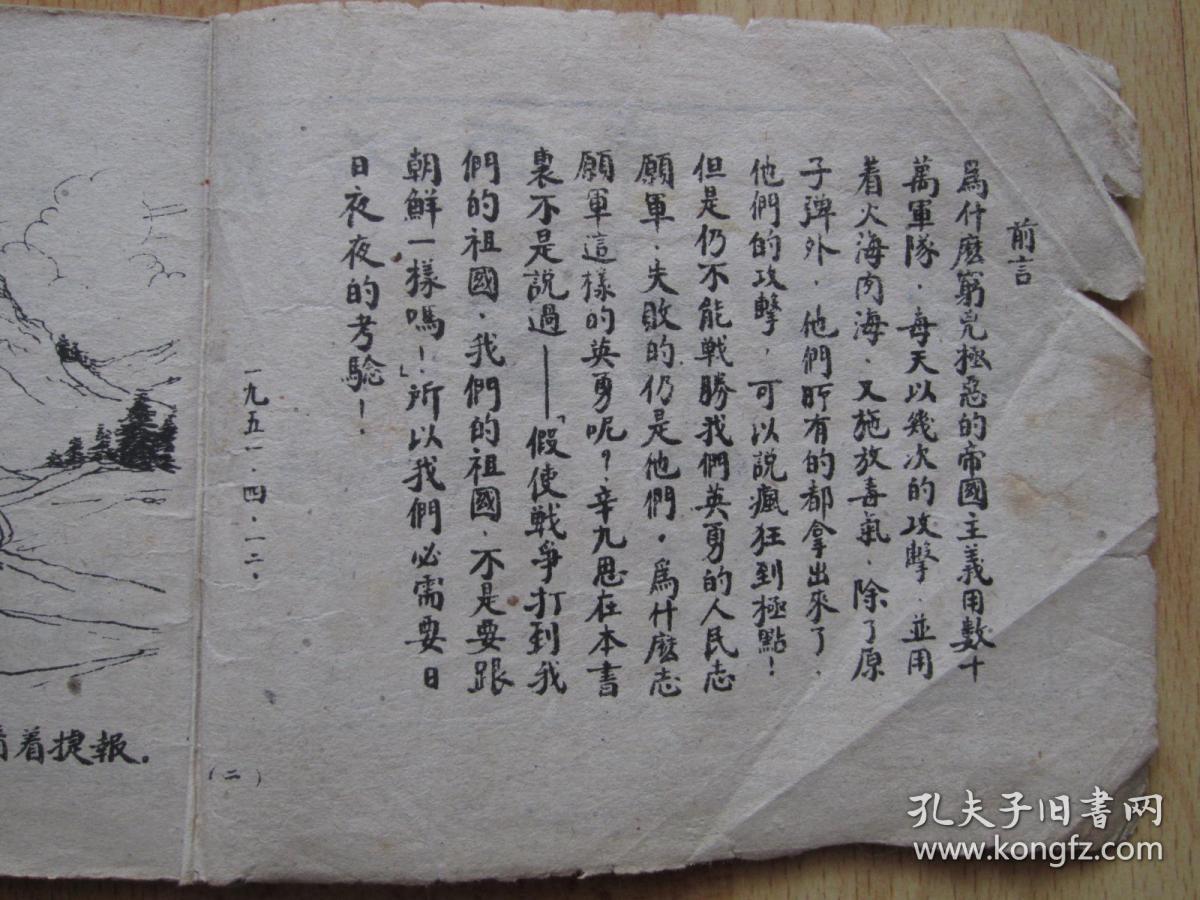 前言
爲什麽窮兇極惡的帝國主義用数十
萬軍隊．每天以幾次的攻擊．並用
着火海肉海．又施放毒氣．除了原
子彈外．他們所有的都拿出來了．
他們的攻擊．可以說瘋狂到極點！
但是仍不能戰勝我們英勇的人民志
願軍．失敗的仍是他們。爲什麽志
願軍這樣的英勇呢？辛九思在本書
裏不是說過——「假使戰爭打到我
們的祖國．我們的祖國．不是要跟
朝鮮一樣嗎！」所以我們必需要日
日夜夜的考驗！
一九五一．四．一二．
（二）
着捷報．
孔夫子旧书网
www.kongfz.com